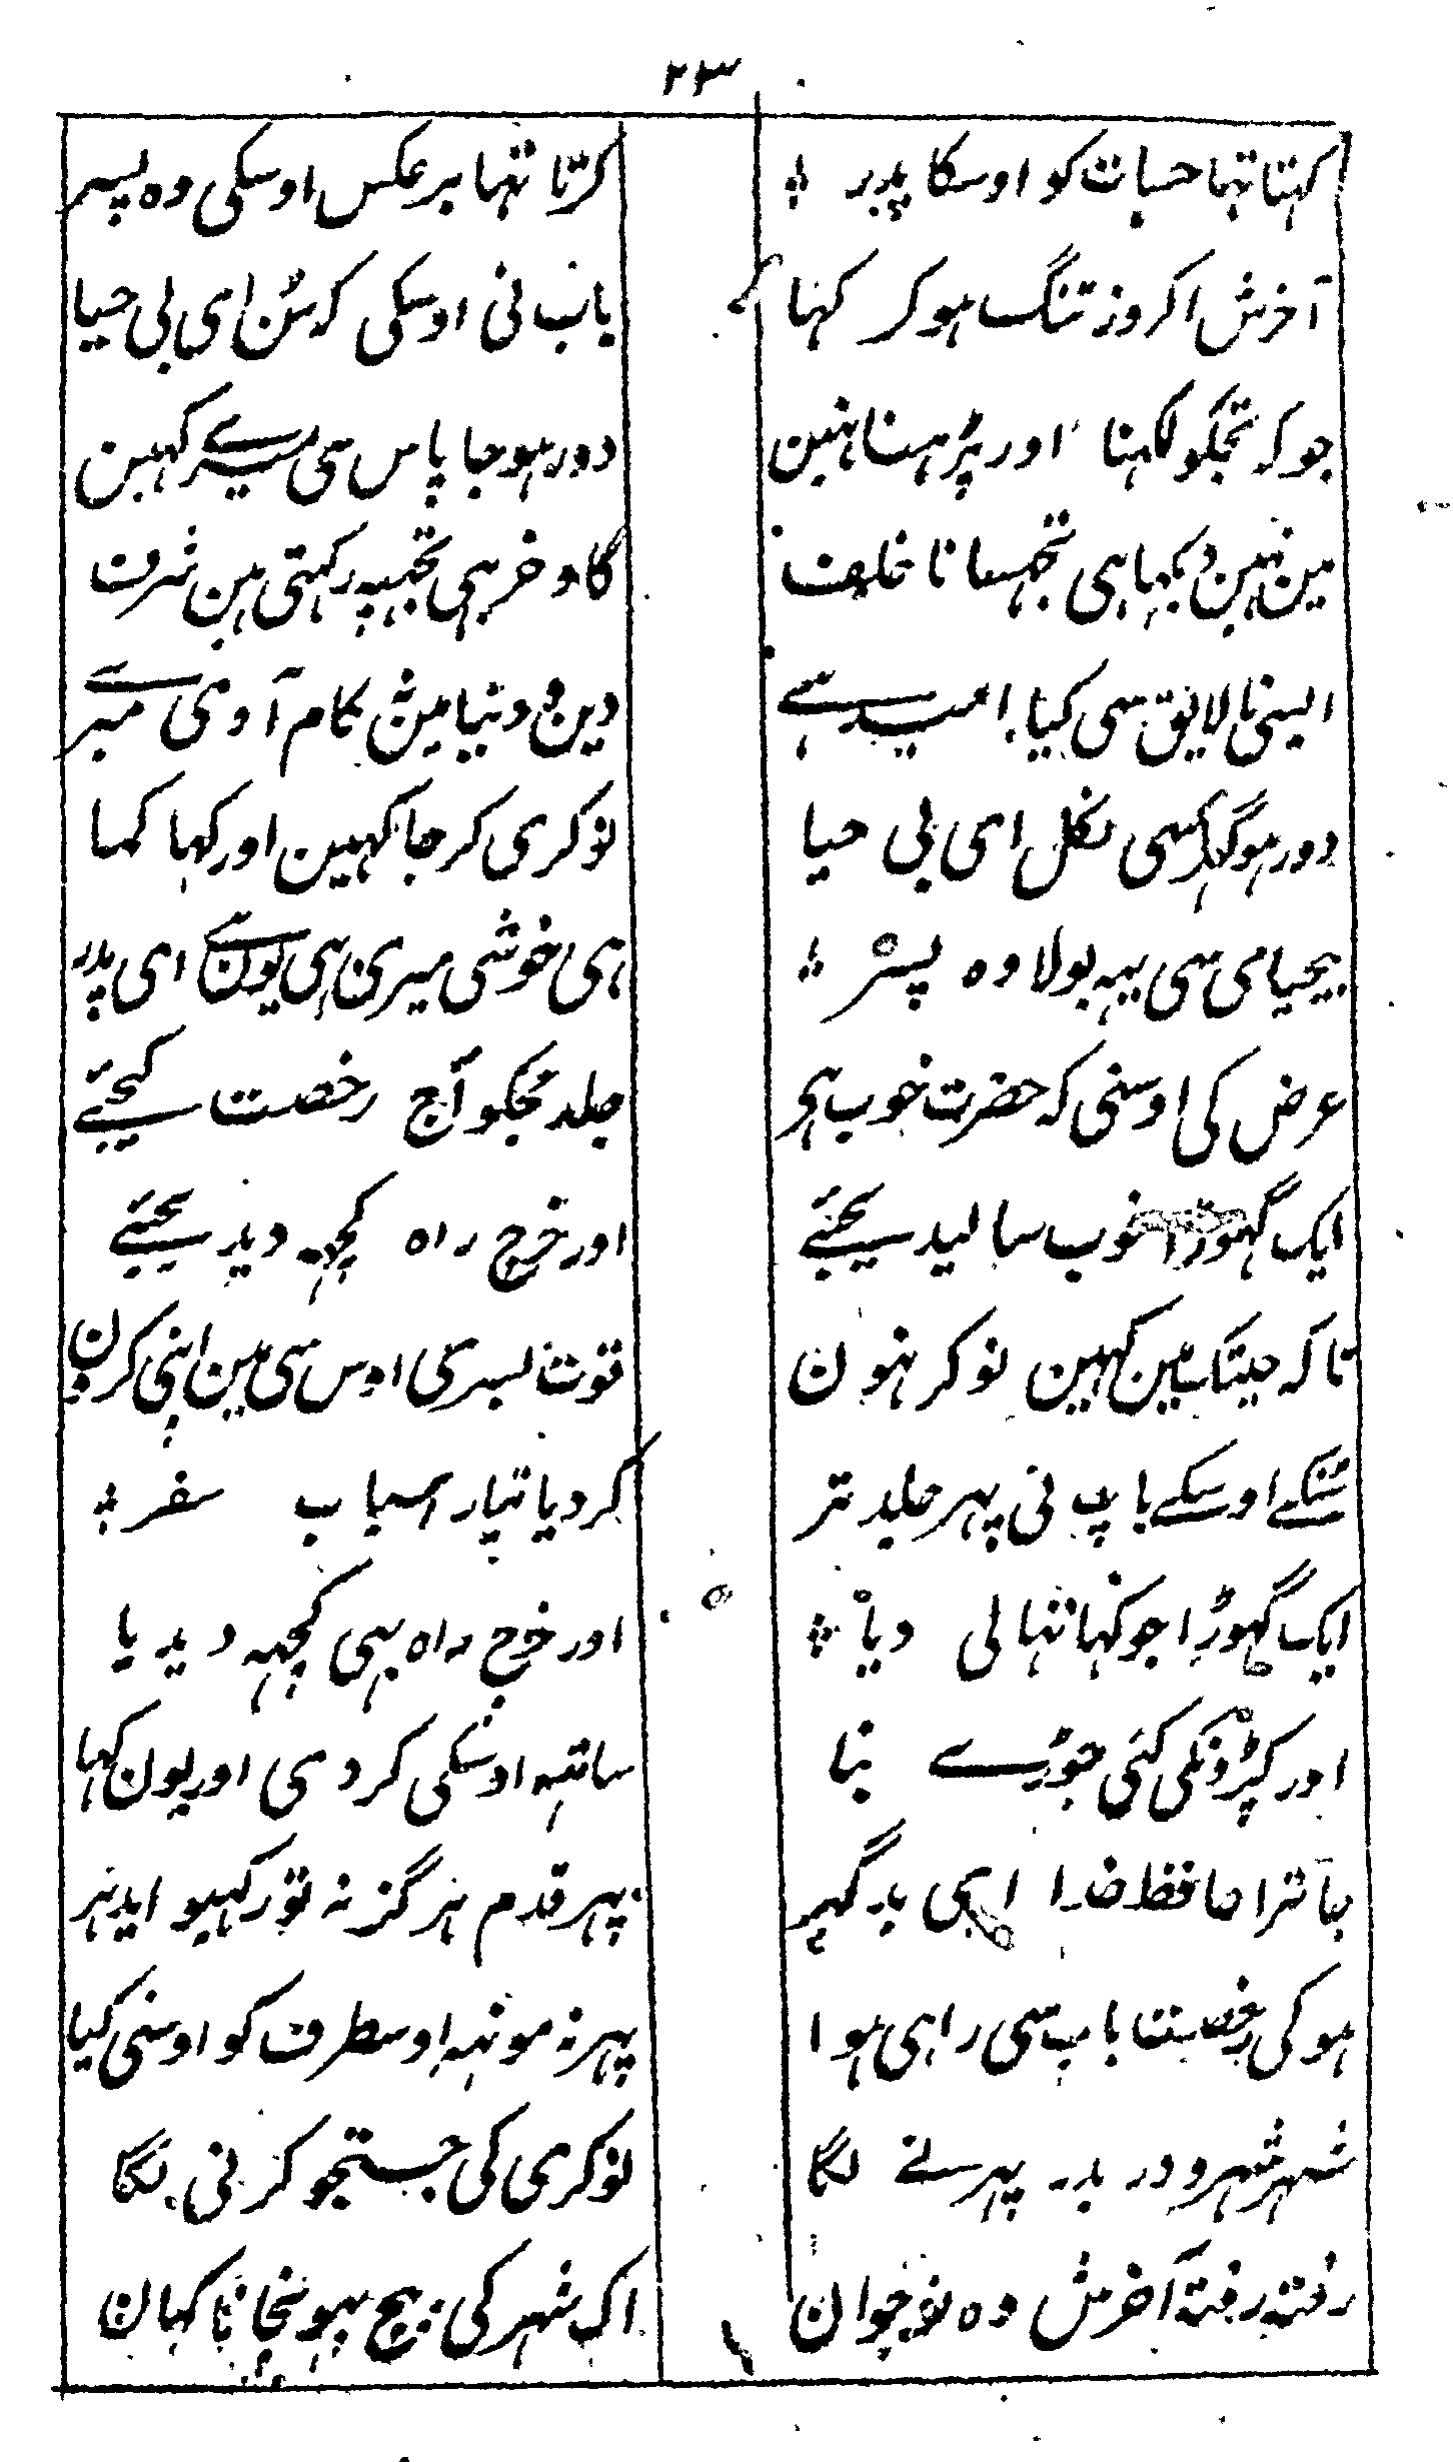 ۲۳
کہتا تہا حسبات کو اوسکا پدر
کرتا تہا برعکس اوسکی وہ پسر
آخرش اکروز تنگ ہوکر کہا
باب نی اوسکی کہ سُن ای بی حیا
جو کہ تجکو لکہنا اور پڑہنا نہین
دور ہو جا پاس سی میرے کہین
مین نہین دیکہا ہی تجہسا نا خلف
گاو خر بہی تجہپہ رکہتی ہین شرف
ایسی نالایق سی کیا امید ہے
دین و دنیا مین کام آوی میرے
دور ہو گہر سی نکل ای بی حیا
نوکری کر جا کہین اور کہا کما
بیحیامی سی یہہ بولا وہ پسر
ہی خوشی میری ہی یون ہے ای پدر
عرض کی اوسنی کہ حضرت خوب ہی
جلد مجکو آج رخصت کیجئے
ایک گہوڑا خوب سا لیدیجئے
اور خرچ راہ کچہہ دیدیجئے
تا کہ جبتک مین کہین نوکر نہون
قوت بسری اوس سی مین اپنی کرون
سنکے اوسکے باپ نی پہر جلد تر
کر دیا تیار اسباب سفر
ایک گہوڑا جو کہا تہا لی دیا
اور خرچ راہ بہی کچہہ دیدیا
اور کپڑونکی کئی جوڑے بنا
ساتہہ اوسکی کر دی اور یون کہا
جا ترا حافظ خدا ای بد گہر
پہر قدم ہرگز نہ تو رکہیو ایدہر
ہو کی رخصت باپ سی راہی ہوا
پہر نہ مونہہ اوسطرف کو اوسنی کیا
شہر شہر و در بدر پہرنے لگا
نوکری کی جستجو کرنی لگا
رفتہ رفتہ آخرش وہ نوجوان
اک شہر کی بیچ پہونچا ناکہان